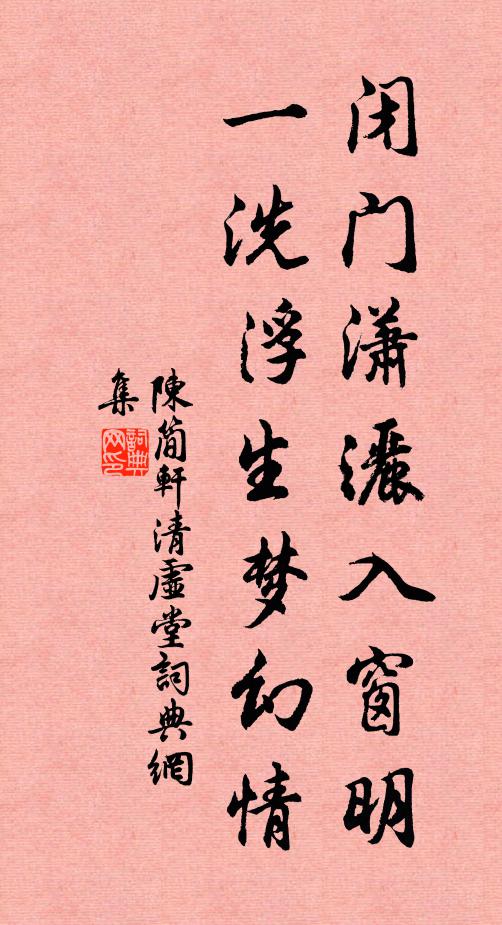 闭门潇灑入窗明
一洗浮生梦幻情
陳简軒清虛堂詞典網
集
詞典
网印